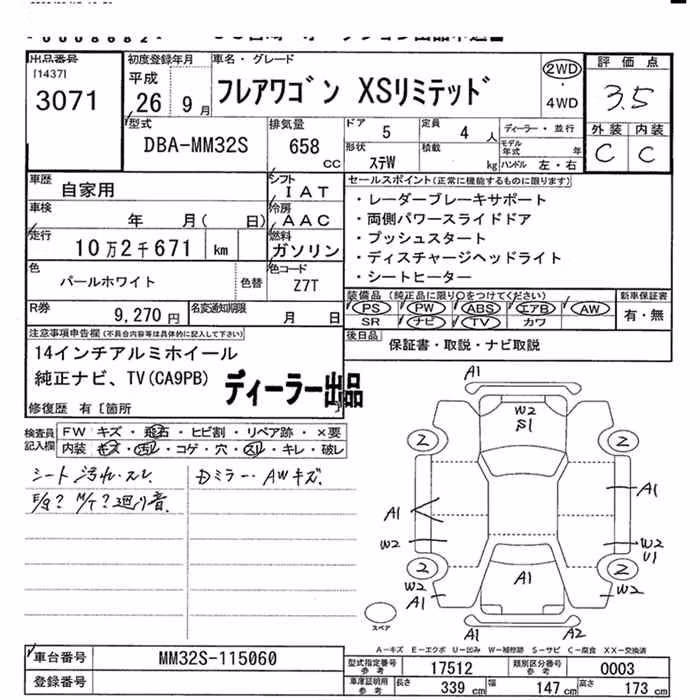 出品番号
[1437]
3071
初度登録年月
平成
26年 9月
車名・グレード
フレアワゴン XSリミテッド
2WD
・
4WD
評価点
3.5
外装 内装
C C
型式
DBA-MM32S
排気量
658
cc
ドア 5
定員 4人
ディーラー・並行
形状 ステW
積載 kg
モデル年式 年
ハンドル 左・右
車歴
自家用
シフト
IAT
車検
年 月( 日)
冷房
AAC
走行
10万2千671 km
燃料
ガソリン
色
パールホワイト
色替
色コード
Z7T
R券
9,270円
名変通知期限
月 日
セールスポイント(正常に機能するものに限ります)
・レーダーブレーキサポート
・両側パワースライドドア
・プッシュスタート
・ディスチャージヘッドライト
・シートヒーター
装備品(純正品に限り○をつけてください)
PS PW ABS エアB AW
SR ナビ TV カワ
新車保証書
有・無
後日品
保証書・取説・ナビ取説
注意事項申告欄(不具合内容等は具体的に記入して下さい)
14インチアルミホイール
純正ナビ、TV(CA9PB)
ディーラー出品
修復歴 有[箇所 ]
検査員記入欄
FW キズ・飛石・ヒビ割・リペア跡・×要
内装 キズ・汚れ・コゲ・穴・スレ・キレ・破レ
シート汚れ・スレ
E/g? M/T? 廻り音
Dミラー・AWキズ
A1
W2
S1
2
2
A1
A1
W2
W2
U1
2
2
W2
A1
A1
W2
A1
A2
スペア
A-キズ E-エクボ U-凹み W-補修跡 S-サビ C-腐食 XX-交換済
車台番号
MM32S-115060
登録番号
型式指定番号
参考
17512
類別区分番号
参考
0003
車庫証明用
参考
長さ 339 cm
幅 147 cm
高さ 173 cm